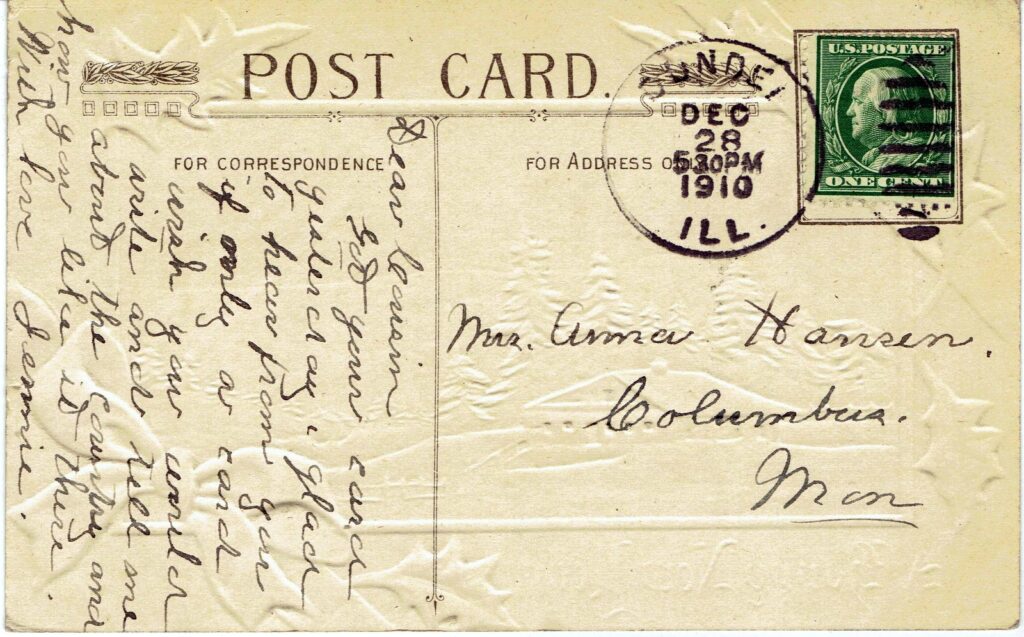 POST CARD.
FOR CORRESPONDENCE
FOR ADDRESS
DUNDEE
DEC
28
530PM
1910
ILL.
U.S. POSTAGE
ONE CENT
Dear Cousin
Got your card
yesterday, glad
to hear from you
if only a card
wish you would
write and tell me
about the country and
how you like it there
With love Jennie.
Mrs. Anna Hansen.
Columbus.
Mon